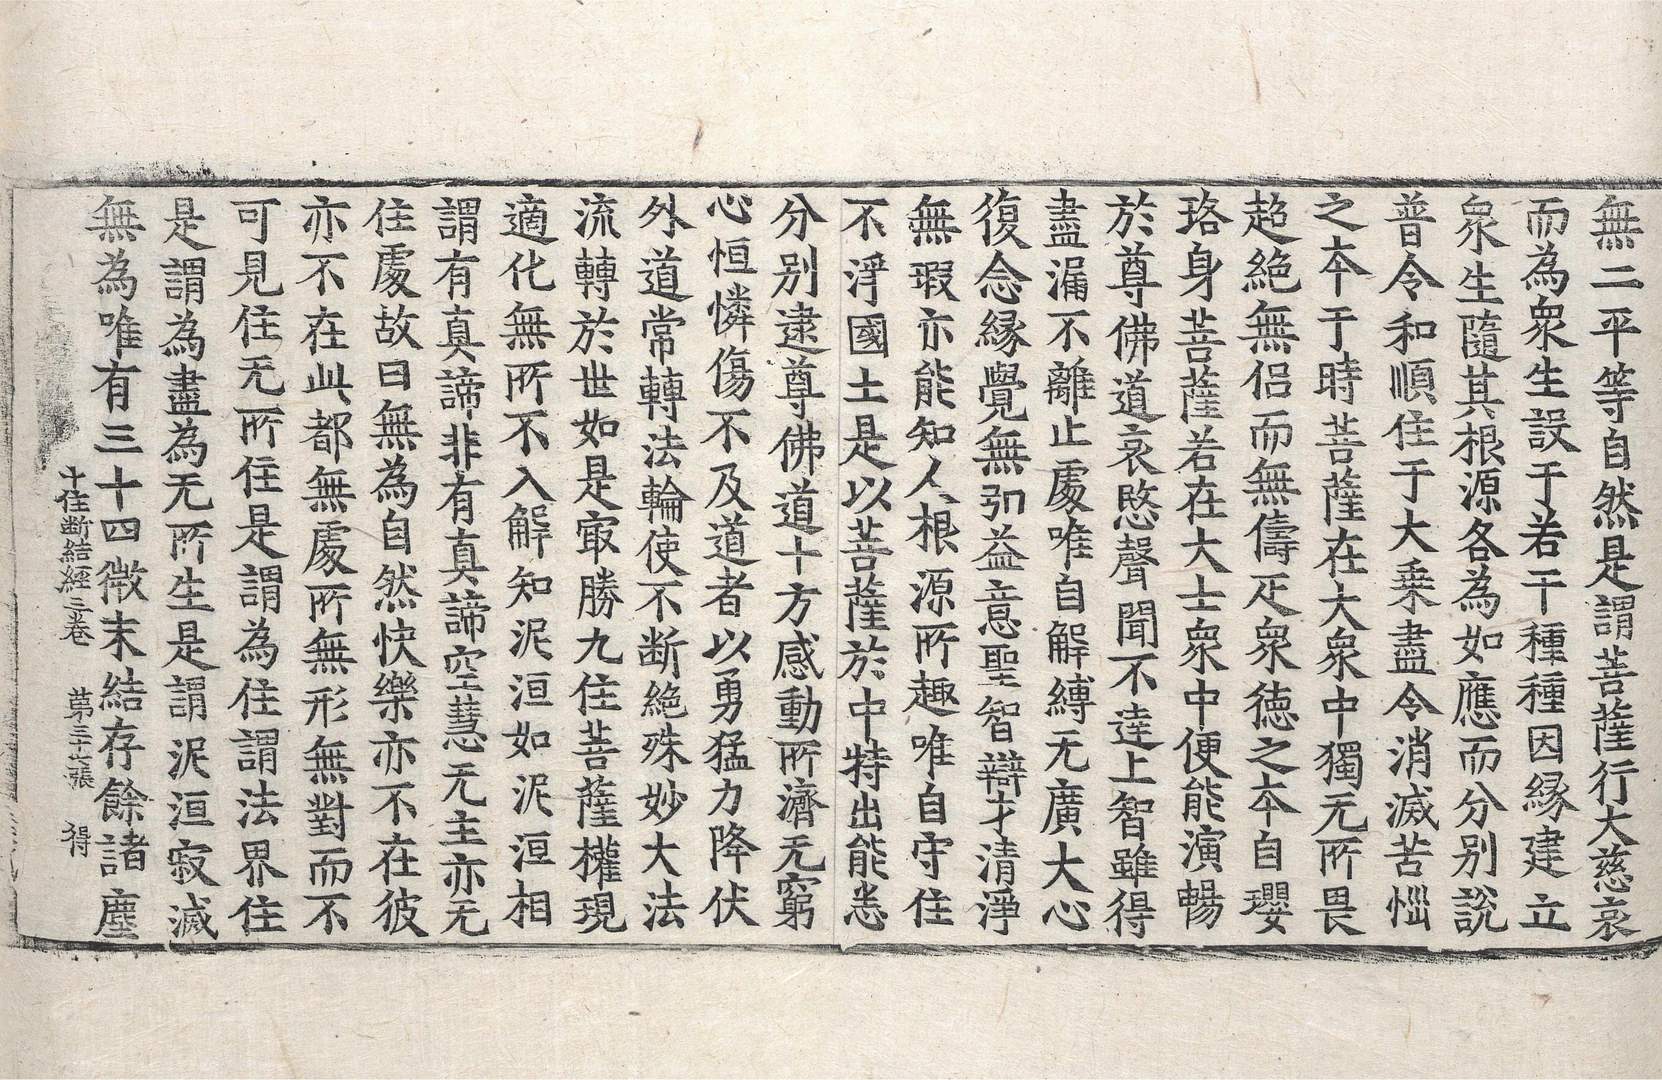 無二平等自然是謂菩薩行大慈哀
而為衆生設于若干種種因緣建立
衆生隨其根源各為如應而分別說
普令和順住于大乗盡令消滅苦惱
之夲于時菩薩在大衆中獨无所畏
超絕無侶而無儔疋衆徳之夲自瓔
珞身菩薩若在大士衆中便能演暢
於尊佛道哀愍聲聞不逹上智雖得
盡漏不離止處唯自解縛无廣大心
復念緣覺無弘益意聖智辯才清淨
無瑕亦能知人根源所趣唯自守住
不淨國土是以菩薩於中特出能悉
分別逮尊佛道十方感動所濟无窮
心恒憐傷不及道者以勇猛力降伏
外道常轉法輪使不断絕殊妙大法
流轉於世如是㝡勝九住菩薩權現
適化無所不入解知泥洹如泥洹相
謂有真諦非有真諦空慧无主亦无
住處故曰無為自然快樂亦不在彼
亦不在此都無處所無形無對而不
可見住无所住是謂為住謂法界住
是謂為盡為无所生是謂泥洹寂滅
無為唯有三十四微末結存餘諸塵
十住断結經三卷 苐三十七張 得